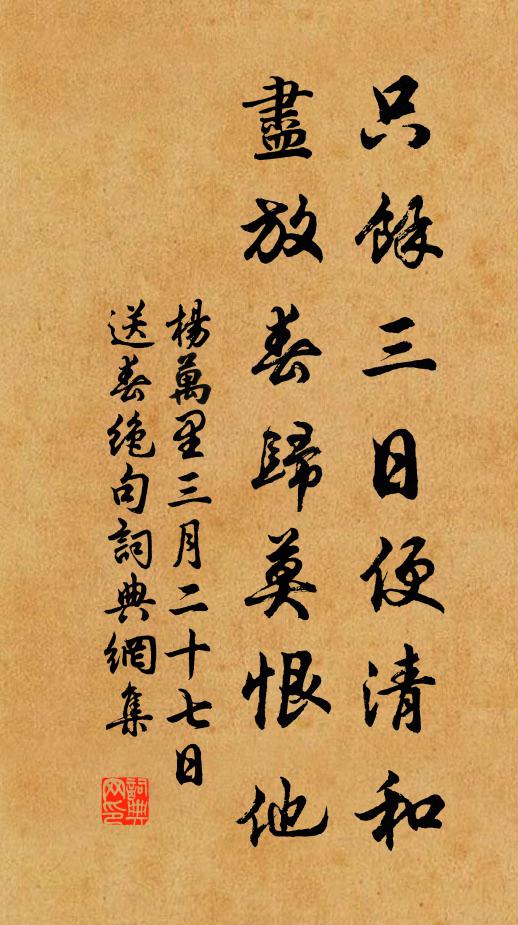 只餘三日便清和
盡放春歸莫恨他
楊萬里三月二十七日
送春絶句詞典網集
詞典
网印